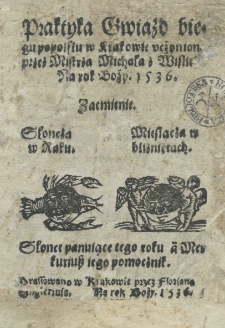 Praktyka Gwiazd bie-
gu popolsku w Krakowie vczynion
przes Mistrza Michała z Wislic
Na rok Boży. 1536.
Zacmienie.
Słończa
w Raku.
Miesiącza w
bliznietach.
Słońce panuiące tego roku ā Mer
kuriusz iego pomocznik.
Prassowano w Krakowie przez Floriana
Na rok Boży. 1536.